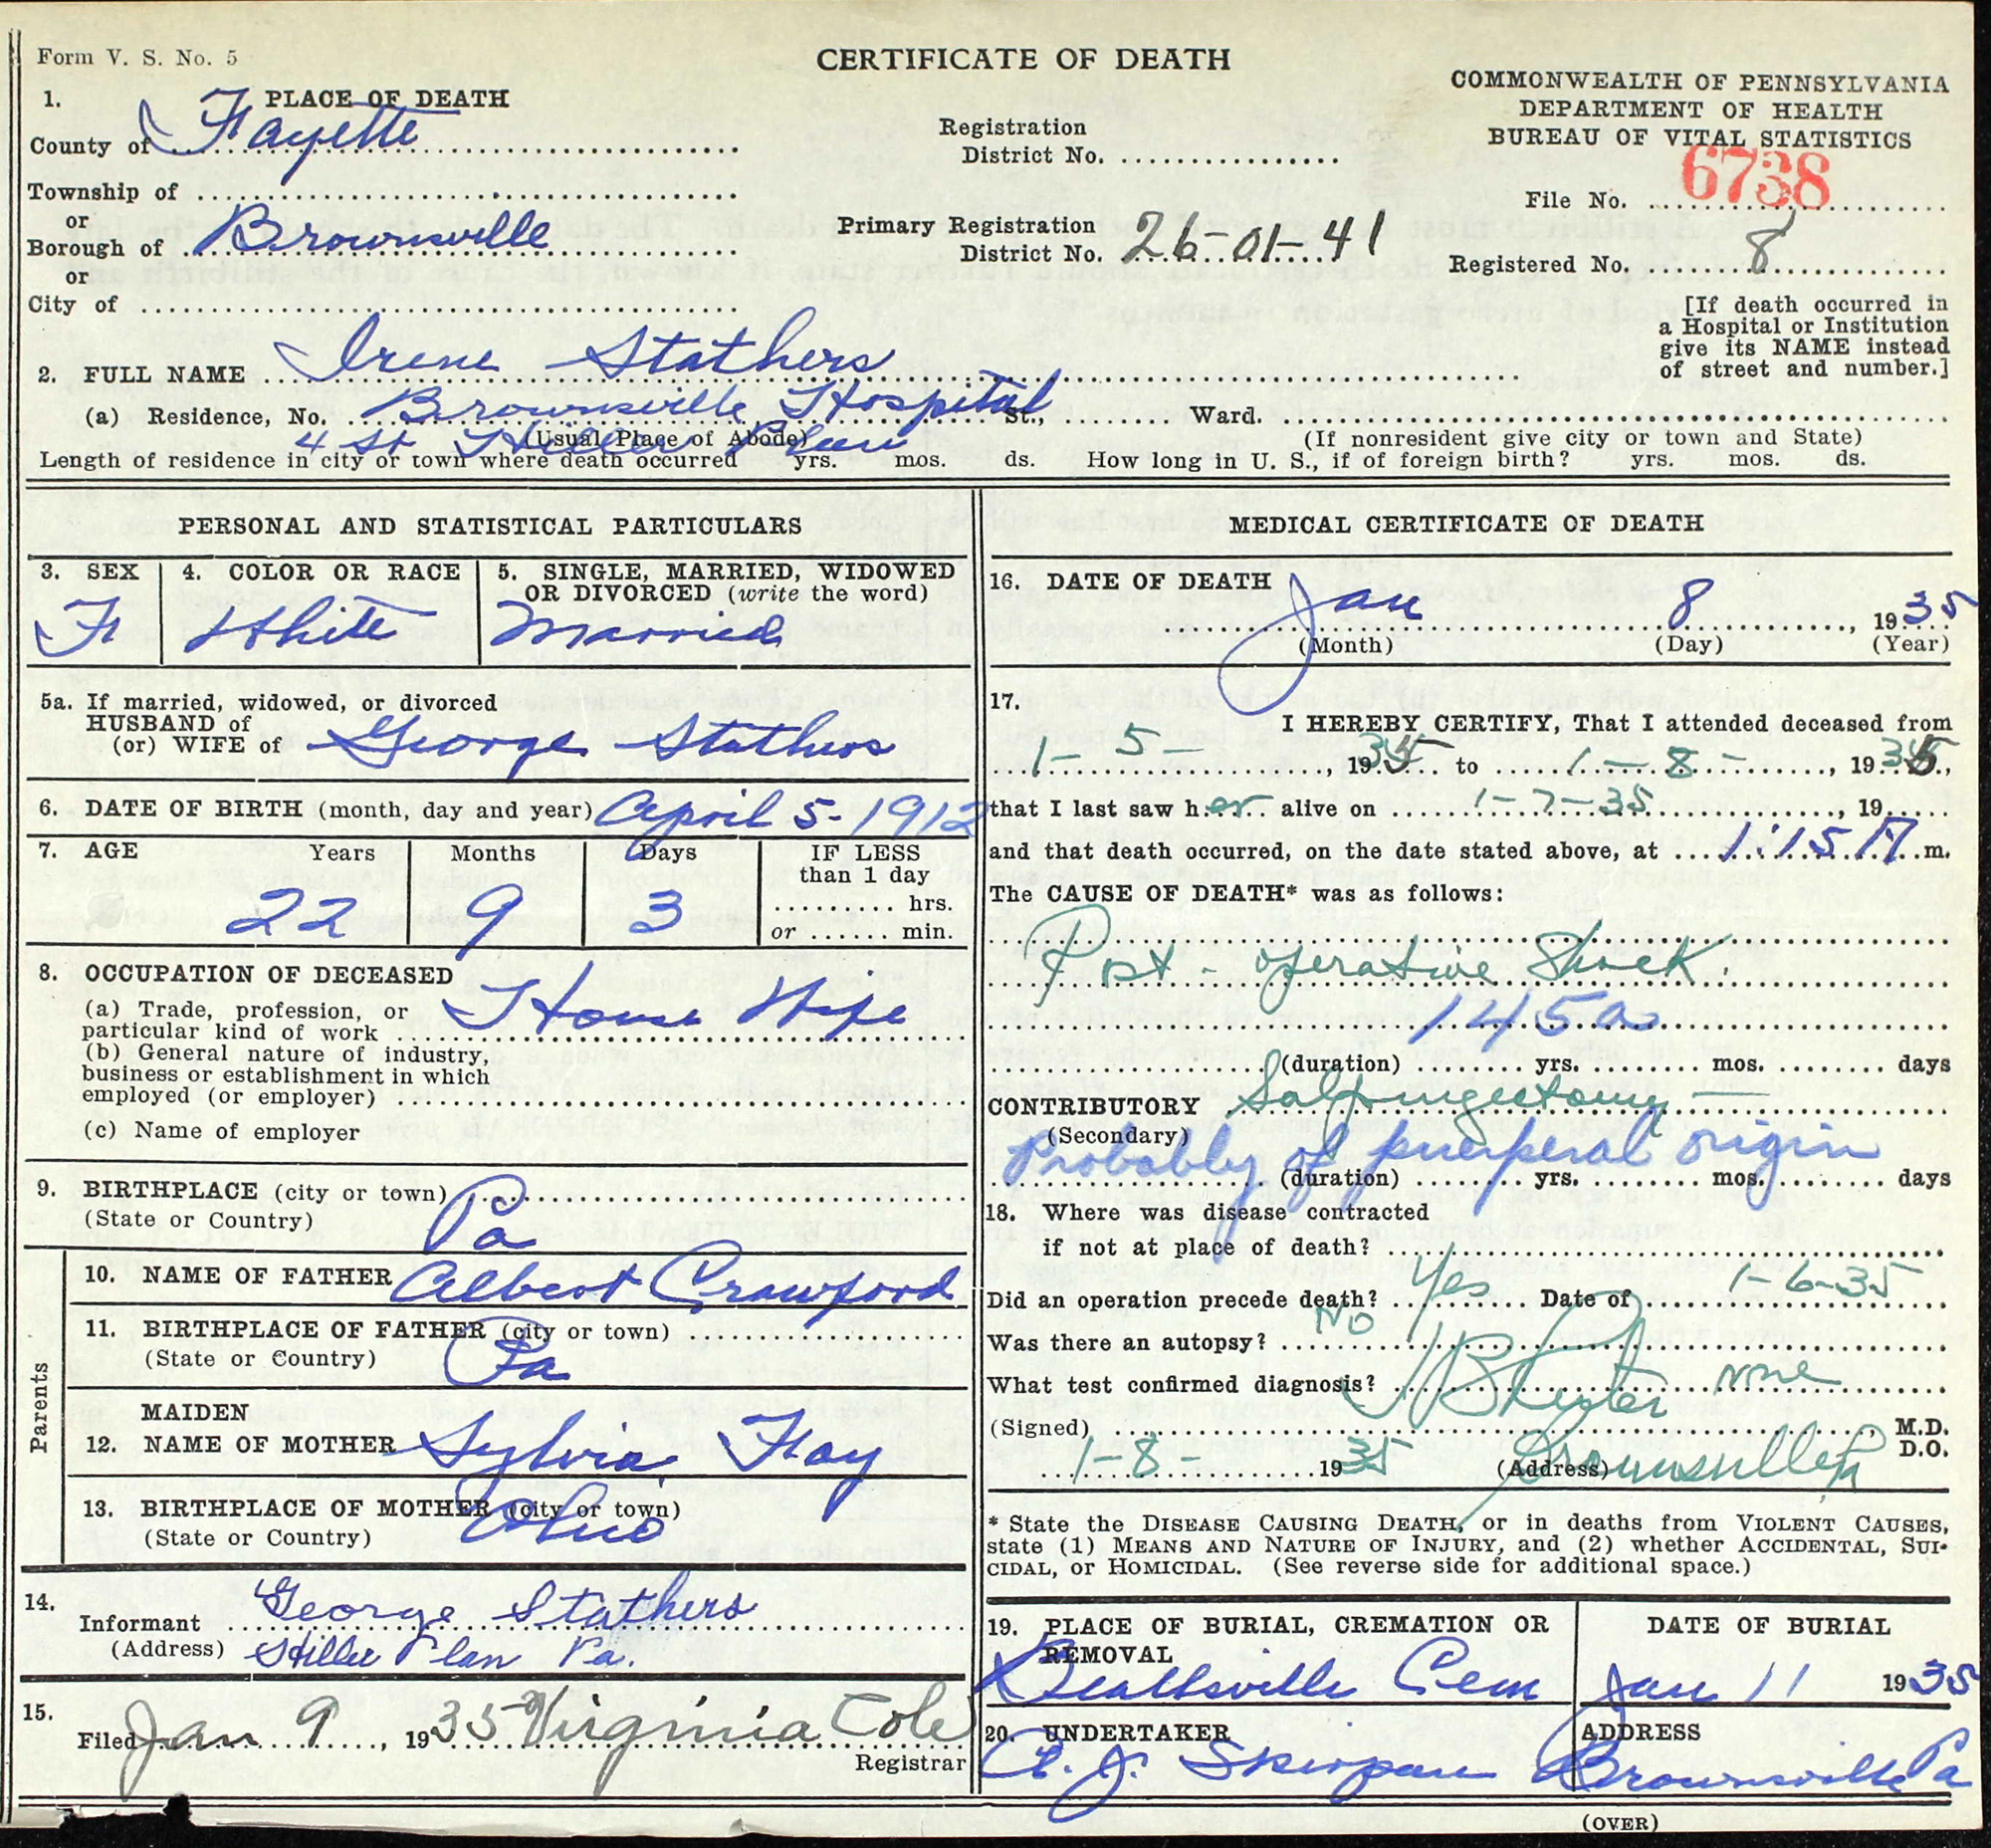 Form V. S. No. 5
CERTIFICATE OF DEATH
COMMONWEALTH OF PENNSYLVANIA
DEPARTMENT OF HEALTH
BUREAU OF VITAL STATISTICS
1. PLACE OF DEATH
County of Fayette
Registration
District No.
Township of
or
Borough of Brownsville
or
City of
Primary Registration
District No. 26-01-41
File No. 6738
Registered No. 8
[If death occurred in
a Hospital or Institution
give its NAME instead
of street and number.]
2. FULL NAME Irene Stathers
(a) Residence, No. Brownsville Hospital St., Ward.
(Usual Place of Abode) 4 St Hiller Plan
(If nonresident give city or town and State)
Length of residence in city or town where death occurred yrs. mos. ds. How long in U. S., if of foreign birth? yrs. mos. ds.
PERSONAL AND STATISTICAL PARTICULARS
3. SEX
F
4. COLOR OR RACE
White
5. SINGLE, MARRIED, WIDOWED
OR DIVORCED (write the word)
Married
5a. If married, widowed, or divorced
HUSBAND of
(or) WIFE of George Stathers
6. DATE OF BIRTH (month, day and year) April 5-1912
7. AGE Years Months Days IF LESS
than 1 day
hrs.
or min.
22 9 3
8. OCCUPATION OF DECEASED
(a) Trade, profession, or
particular kind of work House Wife
(b) General nature of industry,
business or establishment in which
employed (or employer)
(c) Name of employer
9. BIRTHPLACE (city or town)
(State or Country) Pa
Parents
10. NAME OF FATHER Albert Crawford
11. BIRTHPLACE OF FATHER (city or town)
(State or Country) Pa
MAIDEN
12. NAME OF MOTHER Sylvia Hay
13. BIRTHPLACE OF MOTHER (city or town)
(State or Country) Ohio
14.
Informant George Stathers
(Address) Hiller Plan Pa.
15.
Filed Jan 9, 1935 Virginia Cole
Registrar
MEDICAL CERTIFICATE OF DEATH
16. DATE OF DEATH Jan 8, 1935
(Month) (Day) (Year)
17.
I HEREBY CERTIFY, That I attended deceased from
1-5-, 1935 to 1-8-, 1935,
that I last saw her alive on 1-7-35, 19
and that death occurred, on the date stated above, at 1:15 A m.
The CAUSE OF DEATH* was as follows:
Post-operative Shock.
145a
(duration) yrs. mos. days
CONTRIBUTORY Salpingectomy
(Secondary) Probably of puerperal origin
(duration) yrs. mos. days
18. Where was disease contracted
if not at place of death?
Did an operation precede death? Yes Date of 1-6-35
Was there an autopsy? No
What test confirmed diagnosis? none
(Signed) M.D.
D.O.
1-8- 1935 (Address) Brownsville Pa
* State the DISEASE CAUSING DEATH, or in deaths from VIOLENT CAUSES,
state (1) MEANS AND NATURE OF INJURY, and (2) whether ACCIDENTAL, SUI-
CIDAL, or HOMICIDAL. (See reverse side for additional space.)
19. PLACE OF BURIAL, CREMATION OR
REMOVAL
Beallsville Cem
DATE OF BURIAL
Jan 11 1935
20. UNDERTAKER
A. J. Skirpan
ADDRESS
Brownsville Pa
(OVER)